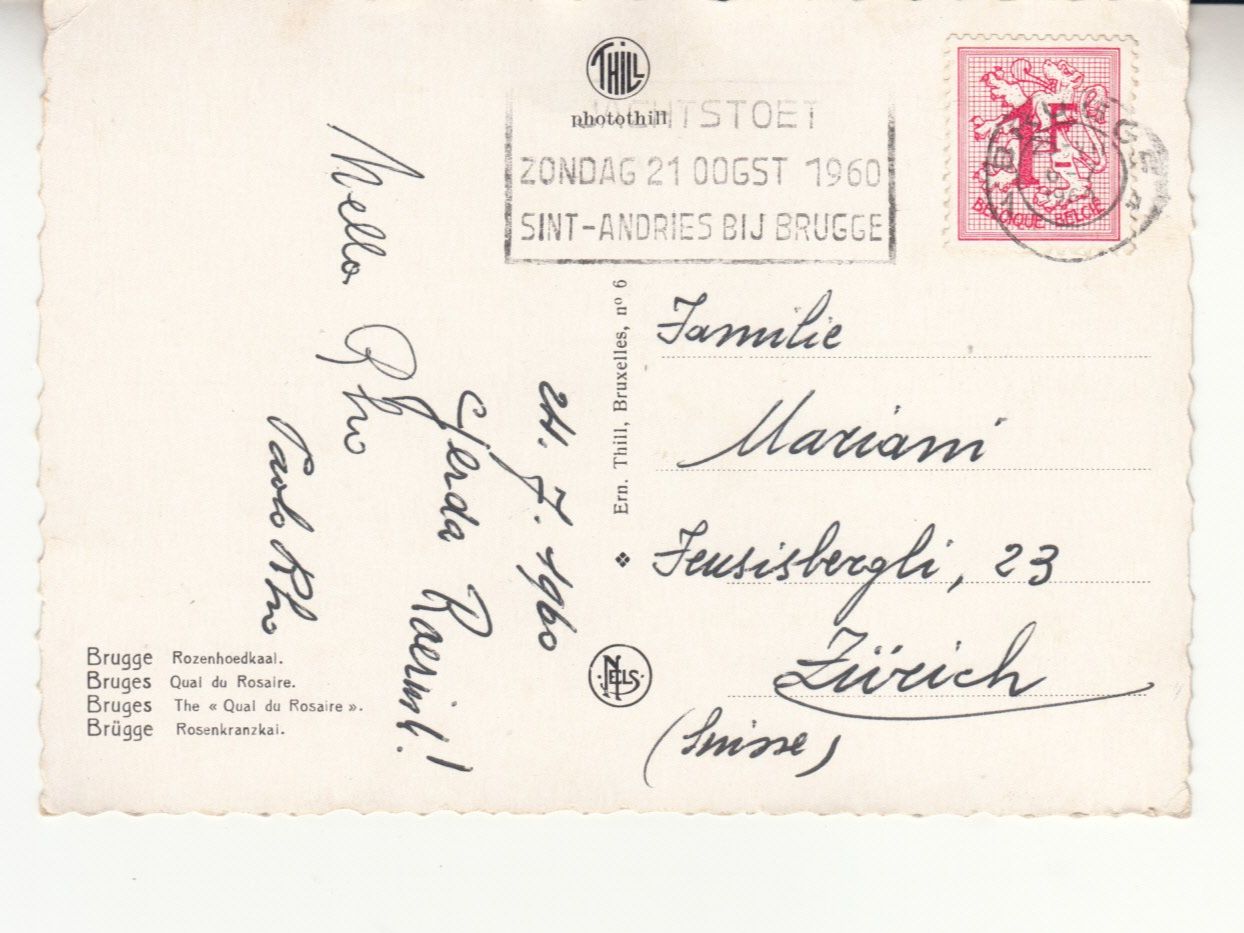 THILL
photothill
JACHTSTOET
ZONDAG 21 OOGST 1960
SINT-ANDRIES BIJ BRUGGE
1F
BELGIQUE-BELGIË
BRUGGE
24. 7. 1960
Gerda
Mella Rho
Paolo Rho
Ern. Thill, Bruxelles, nº 6
NELS
Familie
Mariani
23
Zürich
(Suisse)
Brugge Rozenhoedkaal.
Bruges Quai du Rosaire.
Bruges The « Quai du Rosaire ».
Brügge Rosenkranzkai.